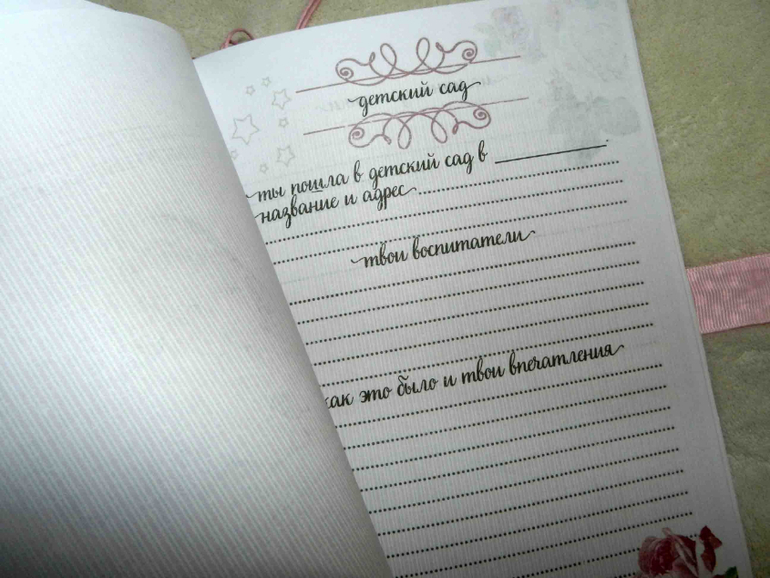 детский сад
ты пошла в детский сад в
название и адрес
твои воспитатели
как это было и твои впечатления